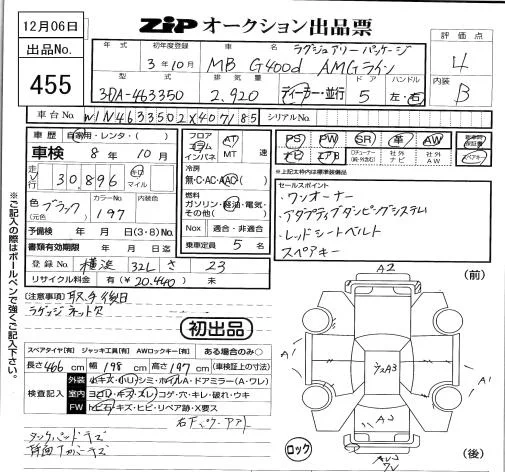 12月06日
ZiP オークション出品票
出品No.
455
年式
初年度登録
3年10月
車名
ラグジュアリーパッケージ
MB G400d AMGライン
評価点
4
型式
3DA-463350
排気量
2,920
ディーラー・並行
ドア
5
ハンドル
左・右
内装
B
車台No.
W1N4633502X407185
シリアルNo.
車歴 自家用・レンタ・( )
車検 8年10月
走行 30,896 キロ マイル
色(元色) ブラック
カラーNo. 197
内装色
予備検 年 月 日(3・8)No.
書類有効期限 年 月 日迄
登録No. 横浜 32L さ 23
リサイクル料金 有(¥20,440) 未
フロア
コラム
インパネ
AT
MT 速
冷房
無・C・AC・AAC
燃料
ガソリン・軽油・電気・その他( )
Nox 適合・非適合
乗車定員 5 名
PS PW SR 革 AW
ナビ エアB
社外ナビ
社外AW
スペアキー
※上記太枠内は標準装備品
セールスポイント
・ワンオーナー
・アダプティブダンピングシステム
・レッドシートベルト
スペアキー
[注意事項] 取、予後日
ラゲッジネット欠
初出品
スペアタイヤ[有] ジャッキ工具[有] AWロックキー[有] ある場合のみ○
長さ 466 cm 幅 198 cm 高さ 197 cm (車検証上の寸法)
検査記入
外装 小キズ・小U・シミ・ホイルA・ドアミラー(A・ワレ)
室内 ヨゴレ・キズ・スレ・コゲ・穴・キレ・破れ・ウキ
FW トビ石・キズ・ヒビ・リペア跡・X要ス
タンクパッドキズ
ロック
(前)
A2
A1
A1
A3
(後)
※ご記入の際はボールペンで強くご記入下さい。